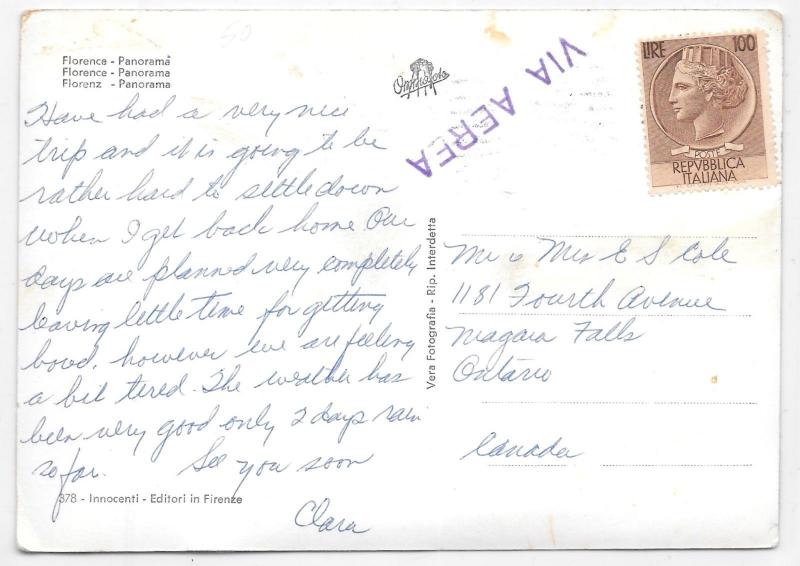 50
Florence - Panorama
Florence - Panorama
Florenz - Panorama
Have had a very nice
trip and it is going to be
rather hard to settle down
when I get back home Our
days are planned very completely
leaving little time for getting
bord, however we are feeling
a bit tired. The weather has
been very good only 2 days rain
so far. See you soon
Clara
378 - Innocenti - Editori in Firenze
Vera Fotografia - Rip. Interdetta
VIA AEREA
LIRE 100
POSTE
REPVBBLICA
ITALIANA
Mr & Mrs E S Cole
1181 Fourth Avenue
Niagara Falls
Ontario
Canada